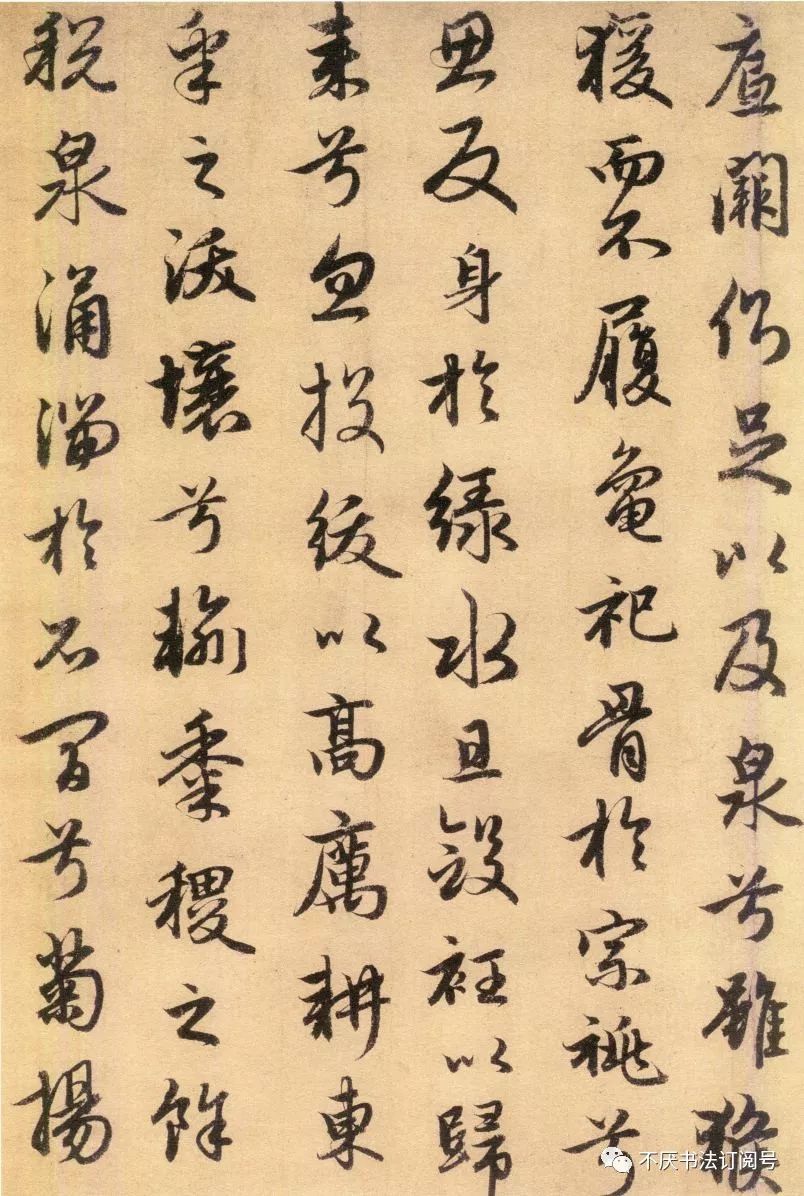 底闕側足以及泉兮雖猴
猨而不履龜祀骨於宗祧兮
思反身於綠水且斂衽以歸
來兮忽投紱以高厲耕東
皋之沃壤兮輸黍稷之餘
稅泉涌湍於石間兮菊揚
不厌书法订阅号